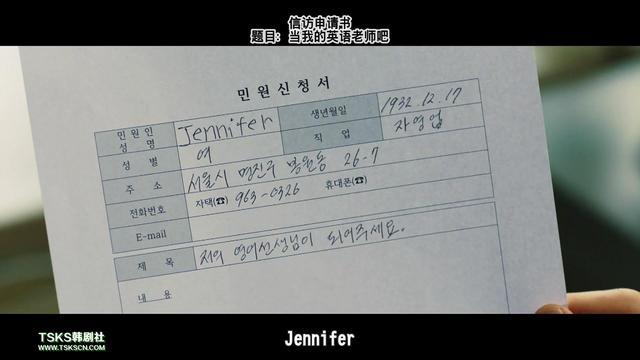 信访申请书
题目：当我的英语老师吧
민 원 신 청 서
민 원 인 성 명 Jennifer 생년월일 1932.12.17
성 별 여 직 업 자영업
주 소 서울시 명진구 봉원동 26-7
전화번호 자택(☎) 963-0326 휴대폰(☎)
E-mail
제 목 저의 영어선생님이 되어주세요.
내 용
TSKS韩剧社
www.TSKSCN.COM
Jennifer